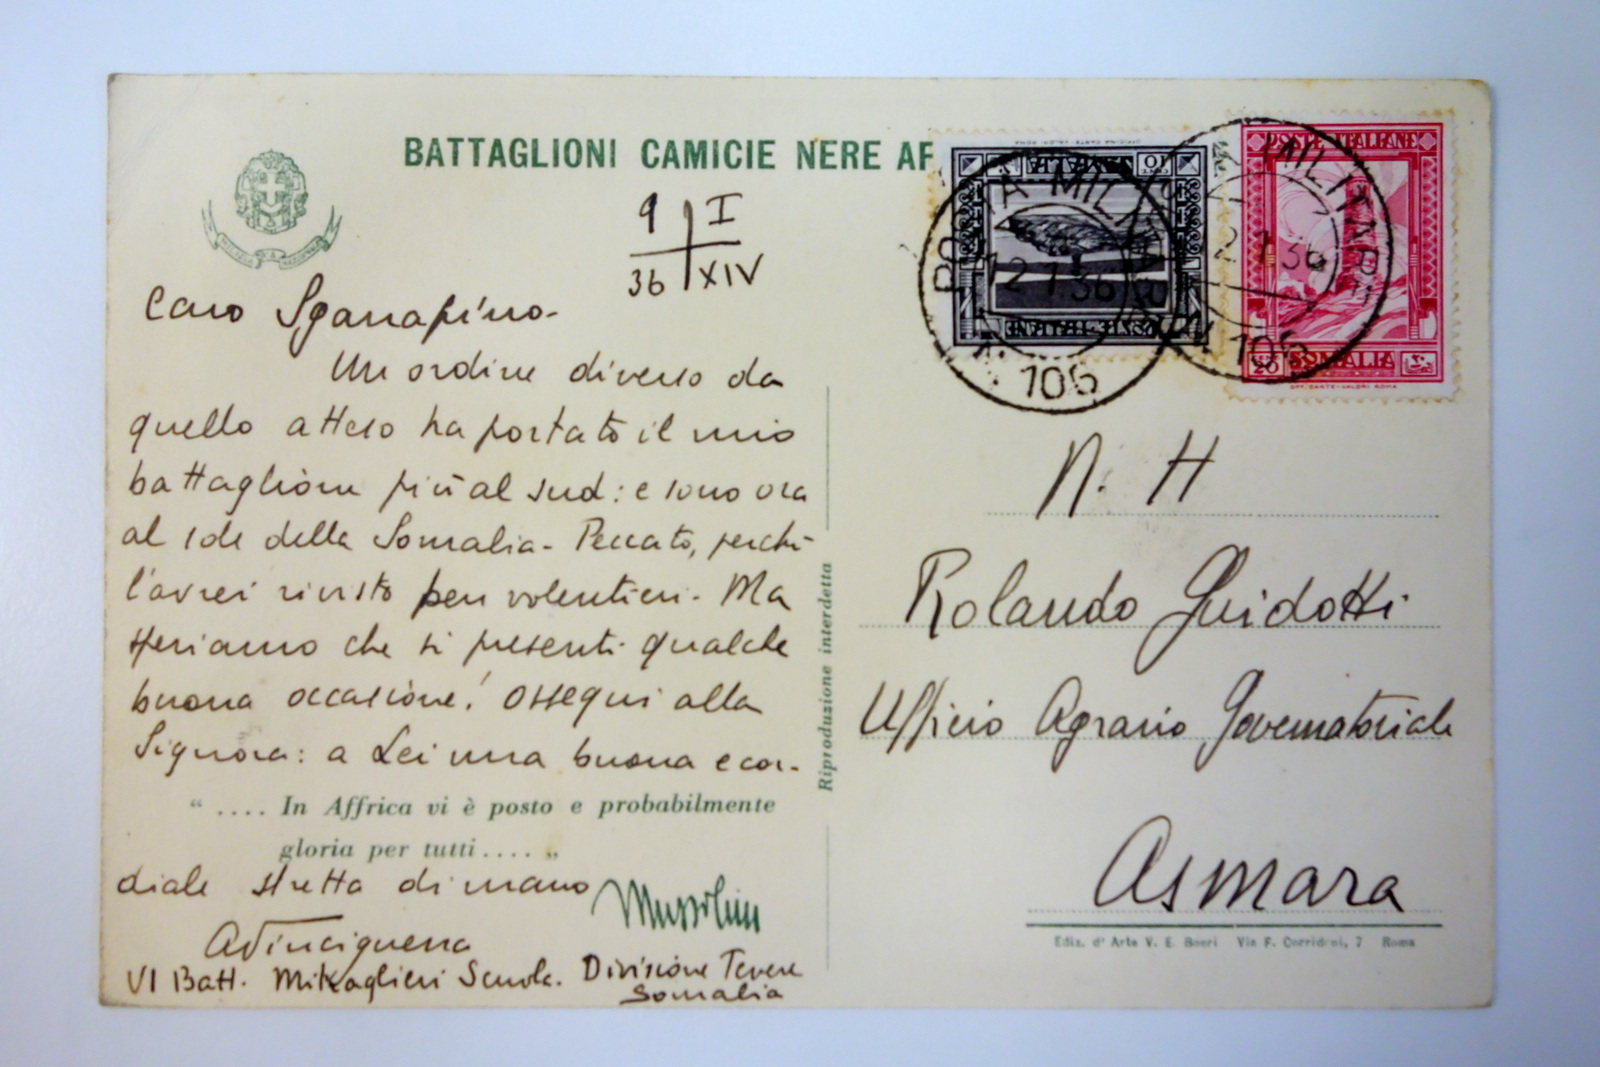 BATTAGLIONI CAMICIE NERE AF
9 I
36 XIV
Caro Sganapino-
Un ordine diverso da
quello atteso ha portato il mio
battaglione più al sud: e sono ora
al sole della Somalia- Peccato, perchè
l'avrei rivisto ben volentieri- Ma
speriamo che si presenti qualche
buona occasione! Ossequi alla
Signora: a Lei una buona e cor-
“ .... In Affrica vi è posto e probabilmente
gloria per tutti .... „
diale stretta di mano
Mussolini
AVinciguerra
VI Batt. Mitraglieri Scuola. Divisione Tevere
Somalia
Riproduzione interdetta
CENT 10 SOMALIA
POSTE ITALIANE
POSTA MILITARE
12.1.36
N. 106
POSTE ITALIANE
MILITARE
12.1.36
N. 106
25 SOMALIA
OFF. CARTE-VALORI ROMA
N. H
Rolando Guidotti
Ufficio Agrario Governatoriale
Asmara
Ediz. d'Arte V. E. Boeri Via F. Corridoni, 7 Roma